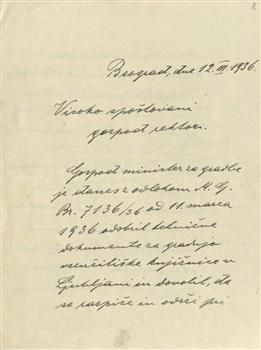 8
Beograd, dne 12. III. 1936.
Visoko spoštovani
gospod rektor.
Gospod minister za gradbe
je danes z odlokom M. G.
Br. 7136/36 od 11. marca
1936 odobril tehnične
dokumente za gradnjo
vseučiliške knjižnice v
Ljubljani in dovolil, da
se razpiše in održi pri